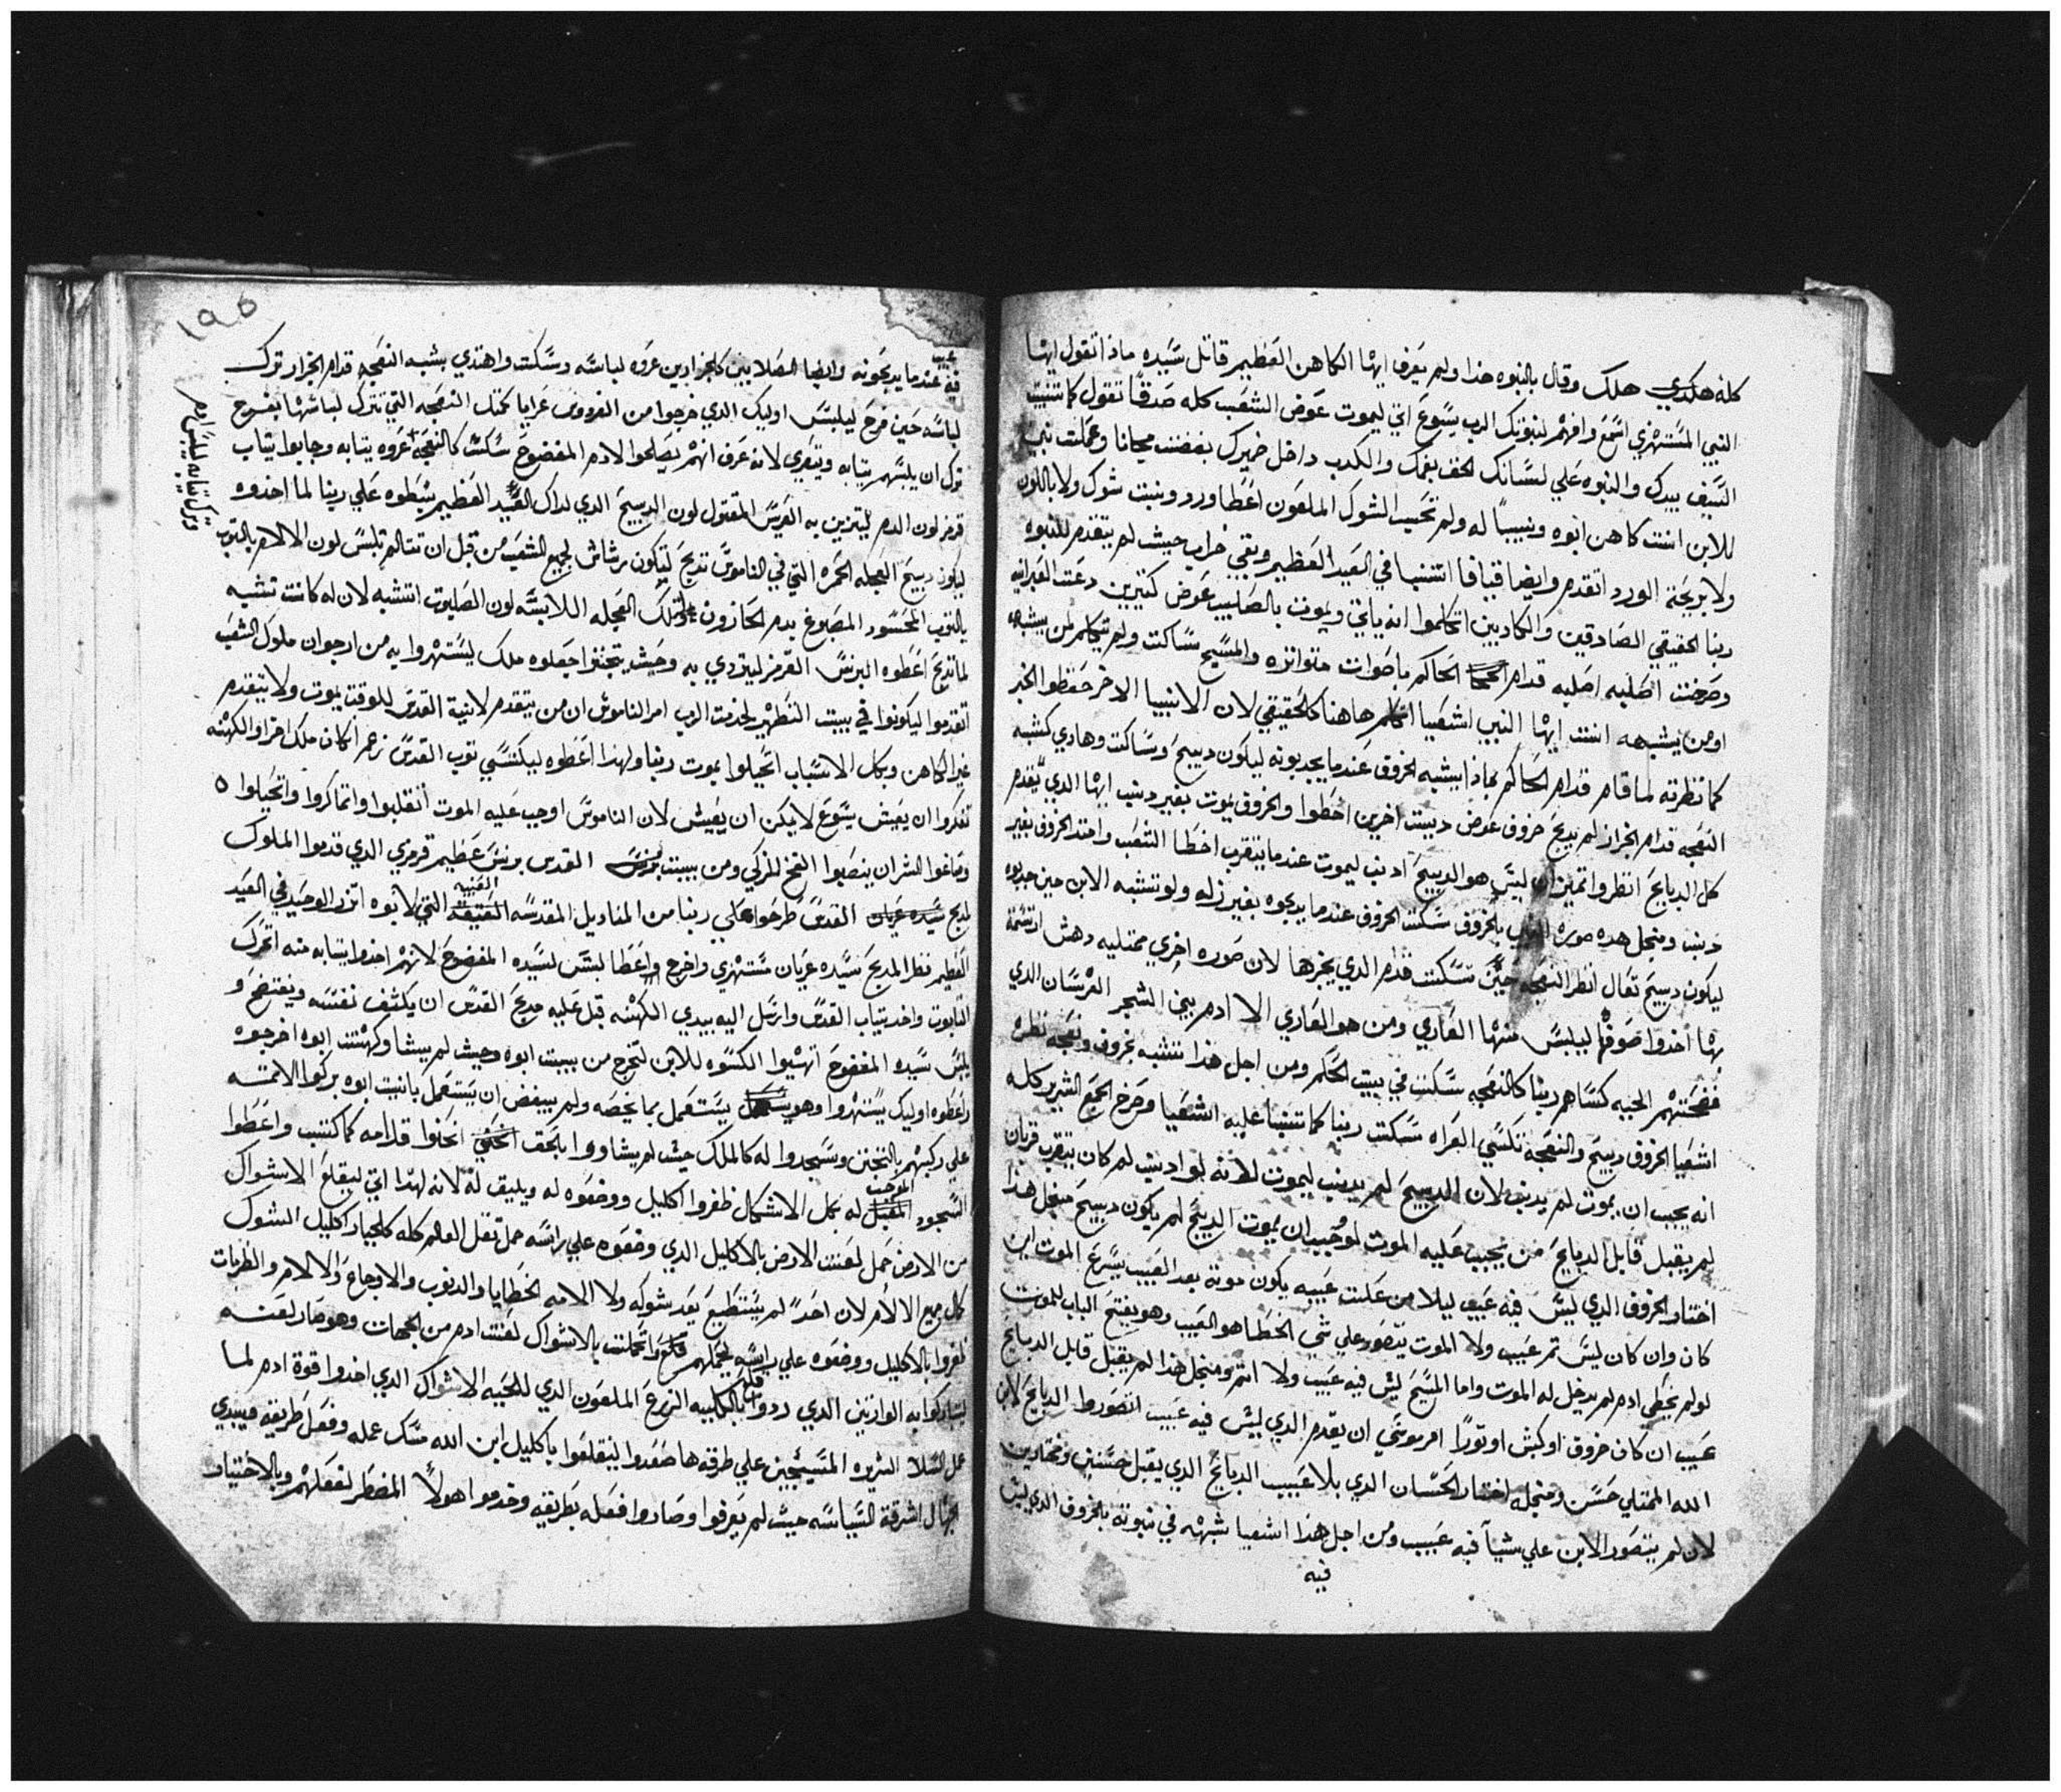 كله هكدي هلك وقال بالنبوه هذا ولم يعرف ايها الكاهن العظيم قاتل سيده ماذا تقول ايها
النبي المستهزي اسمع وافهم لنبوتك الرب يسوع اتي ليموت عوض الشعب كله صدقا تقول كما تنبيت
السيف بيدك والنبوه علي لسانك الحق بفمك والكدب داخل ضميرك بغضت مجانا وعملت نبي
للابن انت كاهن ابوه ونبيا له ولم تحسب الشوك الملعون اعطا ورد وبنت شوك ولا باللون
ولا بريحته الورد اتقدم وايضا قيافا اتنبيا في العيد العظيم وبقي خراب حيث لم يتقدم للنبوه
ربنا الحقيقي الصادقين والكادبين اتكلموا انه ياتي ويموت بالصليب عوض كتيرين دعت العبرانيه
وصرخت اصلبه اصلبه قدام الحاكم باصوات متواتره والمسيح ساكت ولم يتكلم لمن يشبه
او من يشبهه انت ايها النبي اشعيا اتكلم هاهنا كالحقيقي لان الانبيا الاخر حفظوا الخبر
كما نظرته لما قام قدام الحاكم بماذا يشبه الخروف عندما يجدبونه ليكون دبيح وساكت وهادي كشبه
النعجه قدام الجزاز لم يدبح خروف عوض دبيت اخرين اخطوا والخروف يموت بغير دنب ايها الدي يقدم
كل الدبايح انظروا تميز ان ليس هو الدبيح ادنب ليموت عندما يتقرب اخطا الشعب واخد الخروف بغير
دنب ومنجل هده صوره بالخروف سكت الخروف عندما يدبحوه بغير زله ولو تشبه الابن حين جدبوه
ليكون دبيح تعال انظر النعجه حين تسكت قدام الدي يجزها لان صوره اخري ممتليه دهش
بها اخدوا صوفها ليلبس منها العاري ومن هو العاري الا ادم بين الشجر الفرسان الدي
فضحتهم الحيه كساهم ربنا كالنعجه سكت في بيت الحكم ومن اجل هذا تشبه بخروف ونعجه نظره
اشعيا الخروف دبيح والنعجه تكسي العراه سكت ربنا كما تنبيا عليه اشعيا وصرخ الجمع الشرير كله
انه يجب ان يموت لم يدنب لان الدبيح لم يدنب ليموت لانه لو ادنب لم كان يتقرب قربان
لم يقبل قابل الدبايح من يجيب عليه الموت لو وجب ان يموت الدبيح لم يكون دبيح منجل هذا
اختار الخروف الدي ليس فيه عيب ليلا من علت عيبه يكون موته بعد العيب يسرع الموت اين
كان وان كان ليس تم عيب ولا الموت يتصور علي شي الخطا هو العيب وهو يفتح الباب للموت
لو لم يخطي ادم لم يدخل له الموت واما المسيح ليس فيه عيب ولا اتم ومنجل هذا لم يقبل قابل الدبايح
عيب ان كان خروف او كبش او تورا امر موسي ان يقدم الدي ليس فيه عيب اتصوروا الدبايح لابن
الله الممتلي حسن ومنجله اختار الحسان الدي بلا عيب الدبايح الدي يقبل حسنين ومختارين
لان لم يتصور الابن علي شيا فيه عيب ومن اجل هذا اشعيا شبهه في نبوته بالخروف الدي ليس
فيه
١٩٥
عيب
فيه عندما يدبحونه وايضا الصلابين كالجزارين عروه لباسه وسكت واهتدي بشبه النعجه قدام الجزار ترك
لباسه حين فرح ليلبس اوليك الدي خرجوا من الفردوس عرايا كمتل النعجه التي تترك لباسها بفرح
ترك ان يلبسهم يتابه ويتعري لانه عرف انهم يصلحوا لادم المفضوح سكت كالنعجه عروه يتابه وجابوا يتاب
وترك تيابه ليلبس ادم
قرمز لون الدم ليتزين به العريس المقتول لون الدبيح الدي لداك العيد العظيم بسطوه علي ربنا لما اخدوه
ليكون دبيح العجله الحمره التي في الناموس تدبح لتكون رشاش لجميع الشعب من قبل ان تتالم تلبس لون الالام بالتوب
بالتوب المحسود المصبوغ بدم الحلزون تلك العجله اللابسه لون الصلبوت اتشبه لان له كانت تشبه
لما تدبح اعطوه البرنس القرمز ليتردي به وحيث يتجننوا جعلوه ملك ليستهزوا به من ارجوان ملوك الشعب
اتقدموا ليكونوا في بيت التطهير لخدمت الرب امر الناموس ان من يتقدم لانية القدس للوقت يموت ولا يتقدم
غير الكاهن وبكل الاسباب اتحيلوا بموت ربنا ولهذا اعطوه ليكتسي توب القدس زعم اكان ملك اقرا والكهنه
تفكروا ان يعيش يسوع لا يمكن ان يعيش لان الناموس اوجب عليه الموت انقلبوا واتماكروا واتحيلوا ٥
وصاغوا الشر ان ينصبوا الفخ للزكي ومن بيت القدس برنس عظيم قرمزي الدي قدموا الملوك
لمدبح القدس طرحوا علي ربنا من المناديل المقدسه العتيقه التي لابوه اتزر الوحيد في العيد
العظيم نظر المدبح سيده عريان مستهزي واخرج واعطا لبس لسيده المفضوح لانهم اخدوا يتابه منه اتحرك
التابوت واخد يتاب القدس وارسل اليه بيدي الكهنه قبل عليه مدبح القدس ان يكشف نفسه ويفتضح و
يلبس سيده المفضوح اتهيوا الكسوه للابن لتخرج من بيت ابوه وحيث لم يشا وكهنت ابوه اخرجوه
واعطوه اوليك يستهزوا وهو يستعمل بما يخصه ولم يبغض ان يستعمل بانيت ابوه بركوا الامه
علي ركبهم بالتجنن وسجدوا له كالملك حيث لم يشاووا بالحق انحنوا قدامه كما كتب واعطوا
السجود الموجب له بكل الاشكال ظفروا اكليل ووضعوه له ويليق له لانه لهذا اتي ليقلع الاشواك
من الارض حمل لعنت الارض بالاكليل الدي وضعوه علي راسه حمل تقل العالم كله كالجبار اكليل الشوك
كال جميع الالام لان احدا لم يستطيع يعد شوكه ولا الامه الخطايا والدنوب والاوجاع والالام والضربات
ظفروا بالاكليل ووضعوه علي راسه ليحملهم واتحملت بالاشواك لعنت ادم من الجهات وهو صار لعنه
ليتباركوا به الوارتين الدي ردوا بالكليه الزرع الملعون الدي للحيه الاشواك الدي اخدوا قوة ادم لما
عمل السلا الشريره المتسيجين علي طرقه ها صعدوا ليتقلعوا باكليل ابن الله مسك عمله وفعل طريقه مبيدي
الجهال اشرقة السياسه حيث لم يعرفوا وصاروا فعله بطريقه وخدموا هولا المضطر لفعلهم وبالاختيار